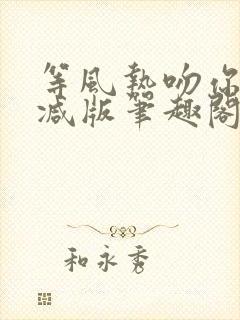 等风热吻你
减版笔趣阁
和永秀